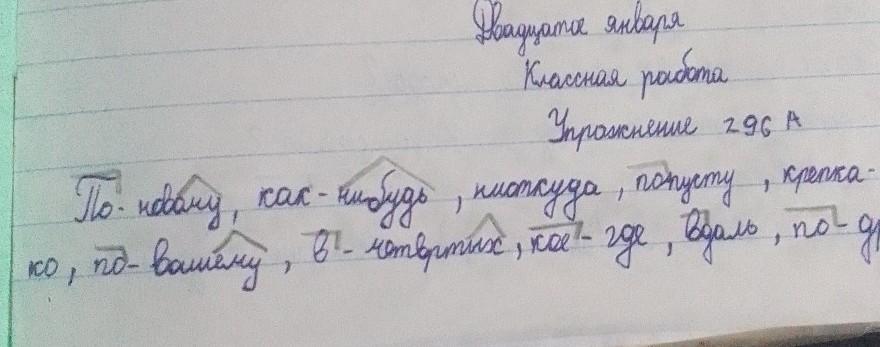 Двадцатое января
Классная работа
Упражнение 296 А
По-новому, как-нибудь, ниоткуда, попусту, крепка-
ко, по-вашему, в-четвертых, кое-где, вдаль, по-др